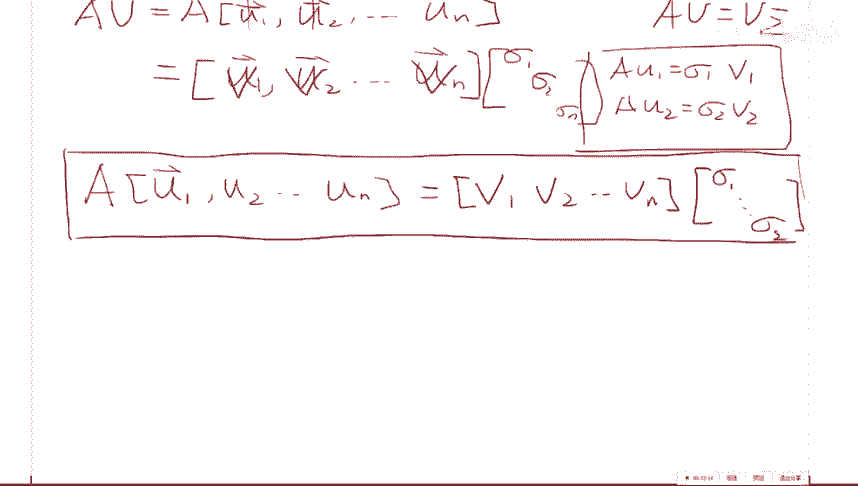 AU = A[u⃗₁, u⃗₂, ... uₙ] AU = VΣ
= [v⃗₁, v⃗₂ ... v⃗ₙ] [σ₁ σ₂ σₙ] Au₁ = σ₁ V₁
Au₂ = σ₂ V₂
A [u⃗₁, u₂ .. uₙ] = [V₁ V₂ .. Vₙ] [σ₁ ⋱ σ₂]